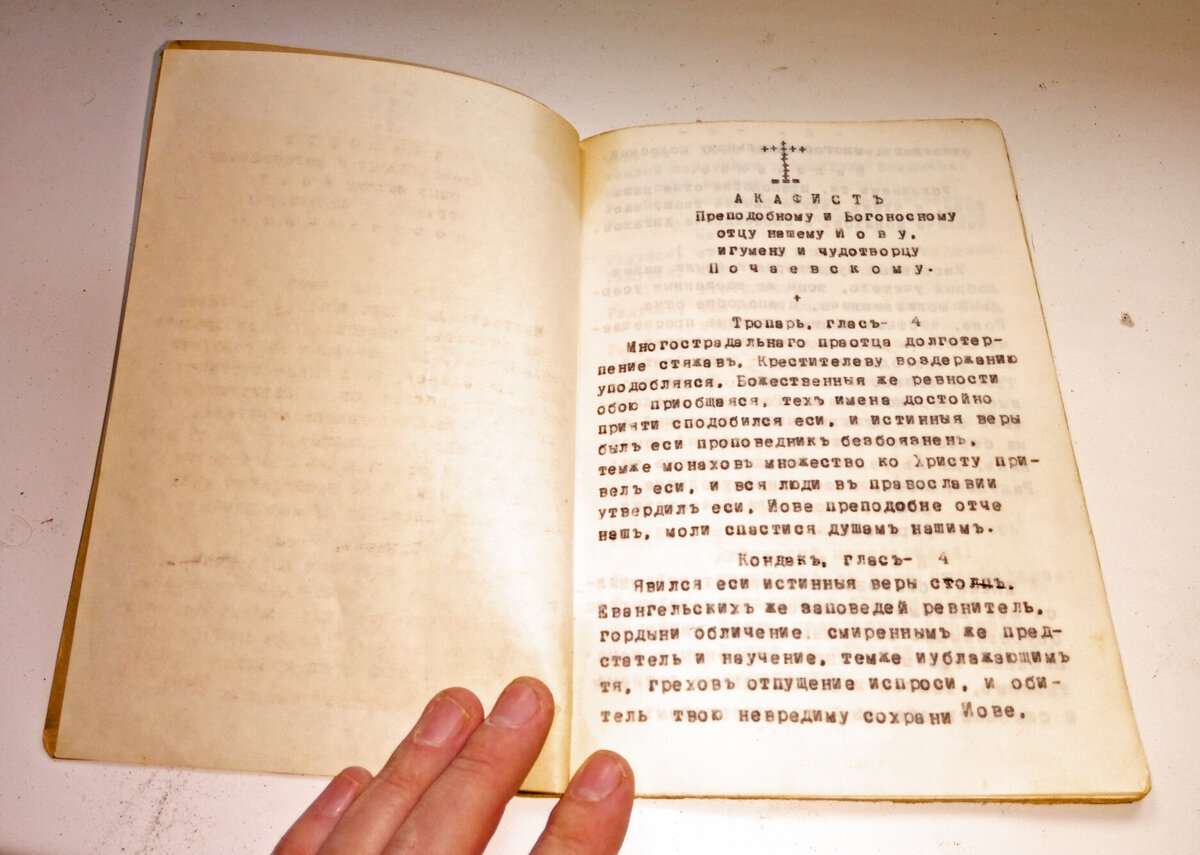 АКАФИСТЪ
Преподобному и Богоносному
отцу нашему Иову,
игумену и чудотворцу
Почаевскому.
+
Тропарь, гласъ- 4
Многострадальнаго праотца долготер-
пение стяжавъ, Крестителеву воздержанию
уподобляяся, Божественныя же ревности
обою приобщаяся, техъ имена достойно
прияти сподобился еси, и истинныя веры
былъ еси проповедникъ безбоязненъ,
темже монаховъ множество ко Христу при-
велъ еси, и вся люди въ православии
утвердилъ еси, Иове преподобне отче
нашъ, моли спастися душамъ нашимъ.
Кондакъ, гласъ- 4
Явился еси истинныя веры столпъ,
Евангельскихъ же заповедей ревнитель,
гордыни обличение, смиреннымъ же пред-
статель и научение, темже иублажающимъ
тя, греховъ отпущение испроси, и оби-
тель твою невредиму сохрани Иове,